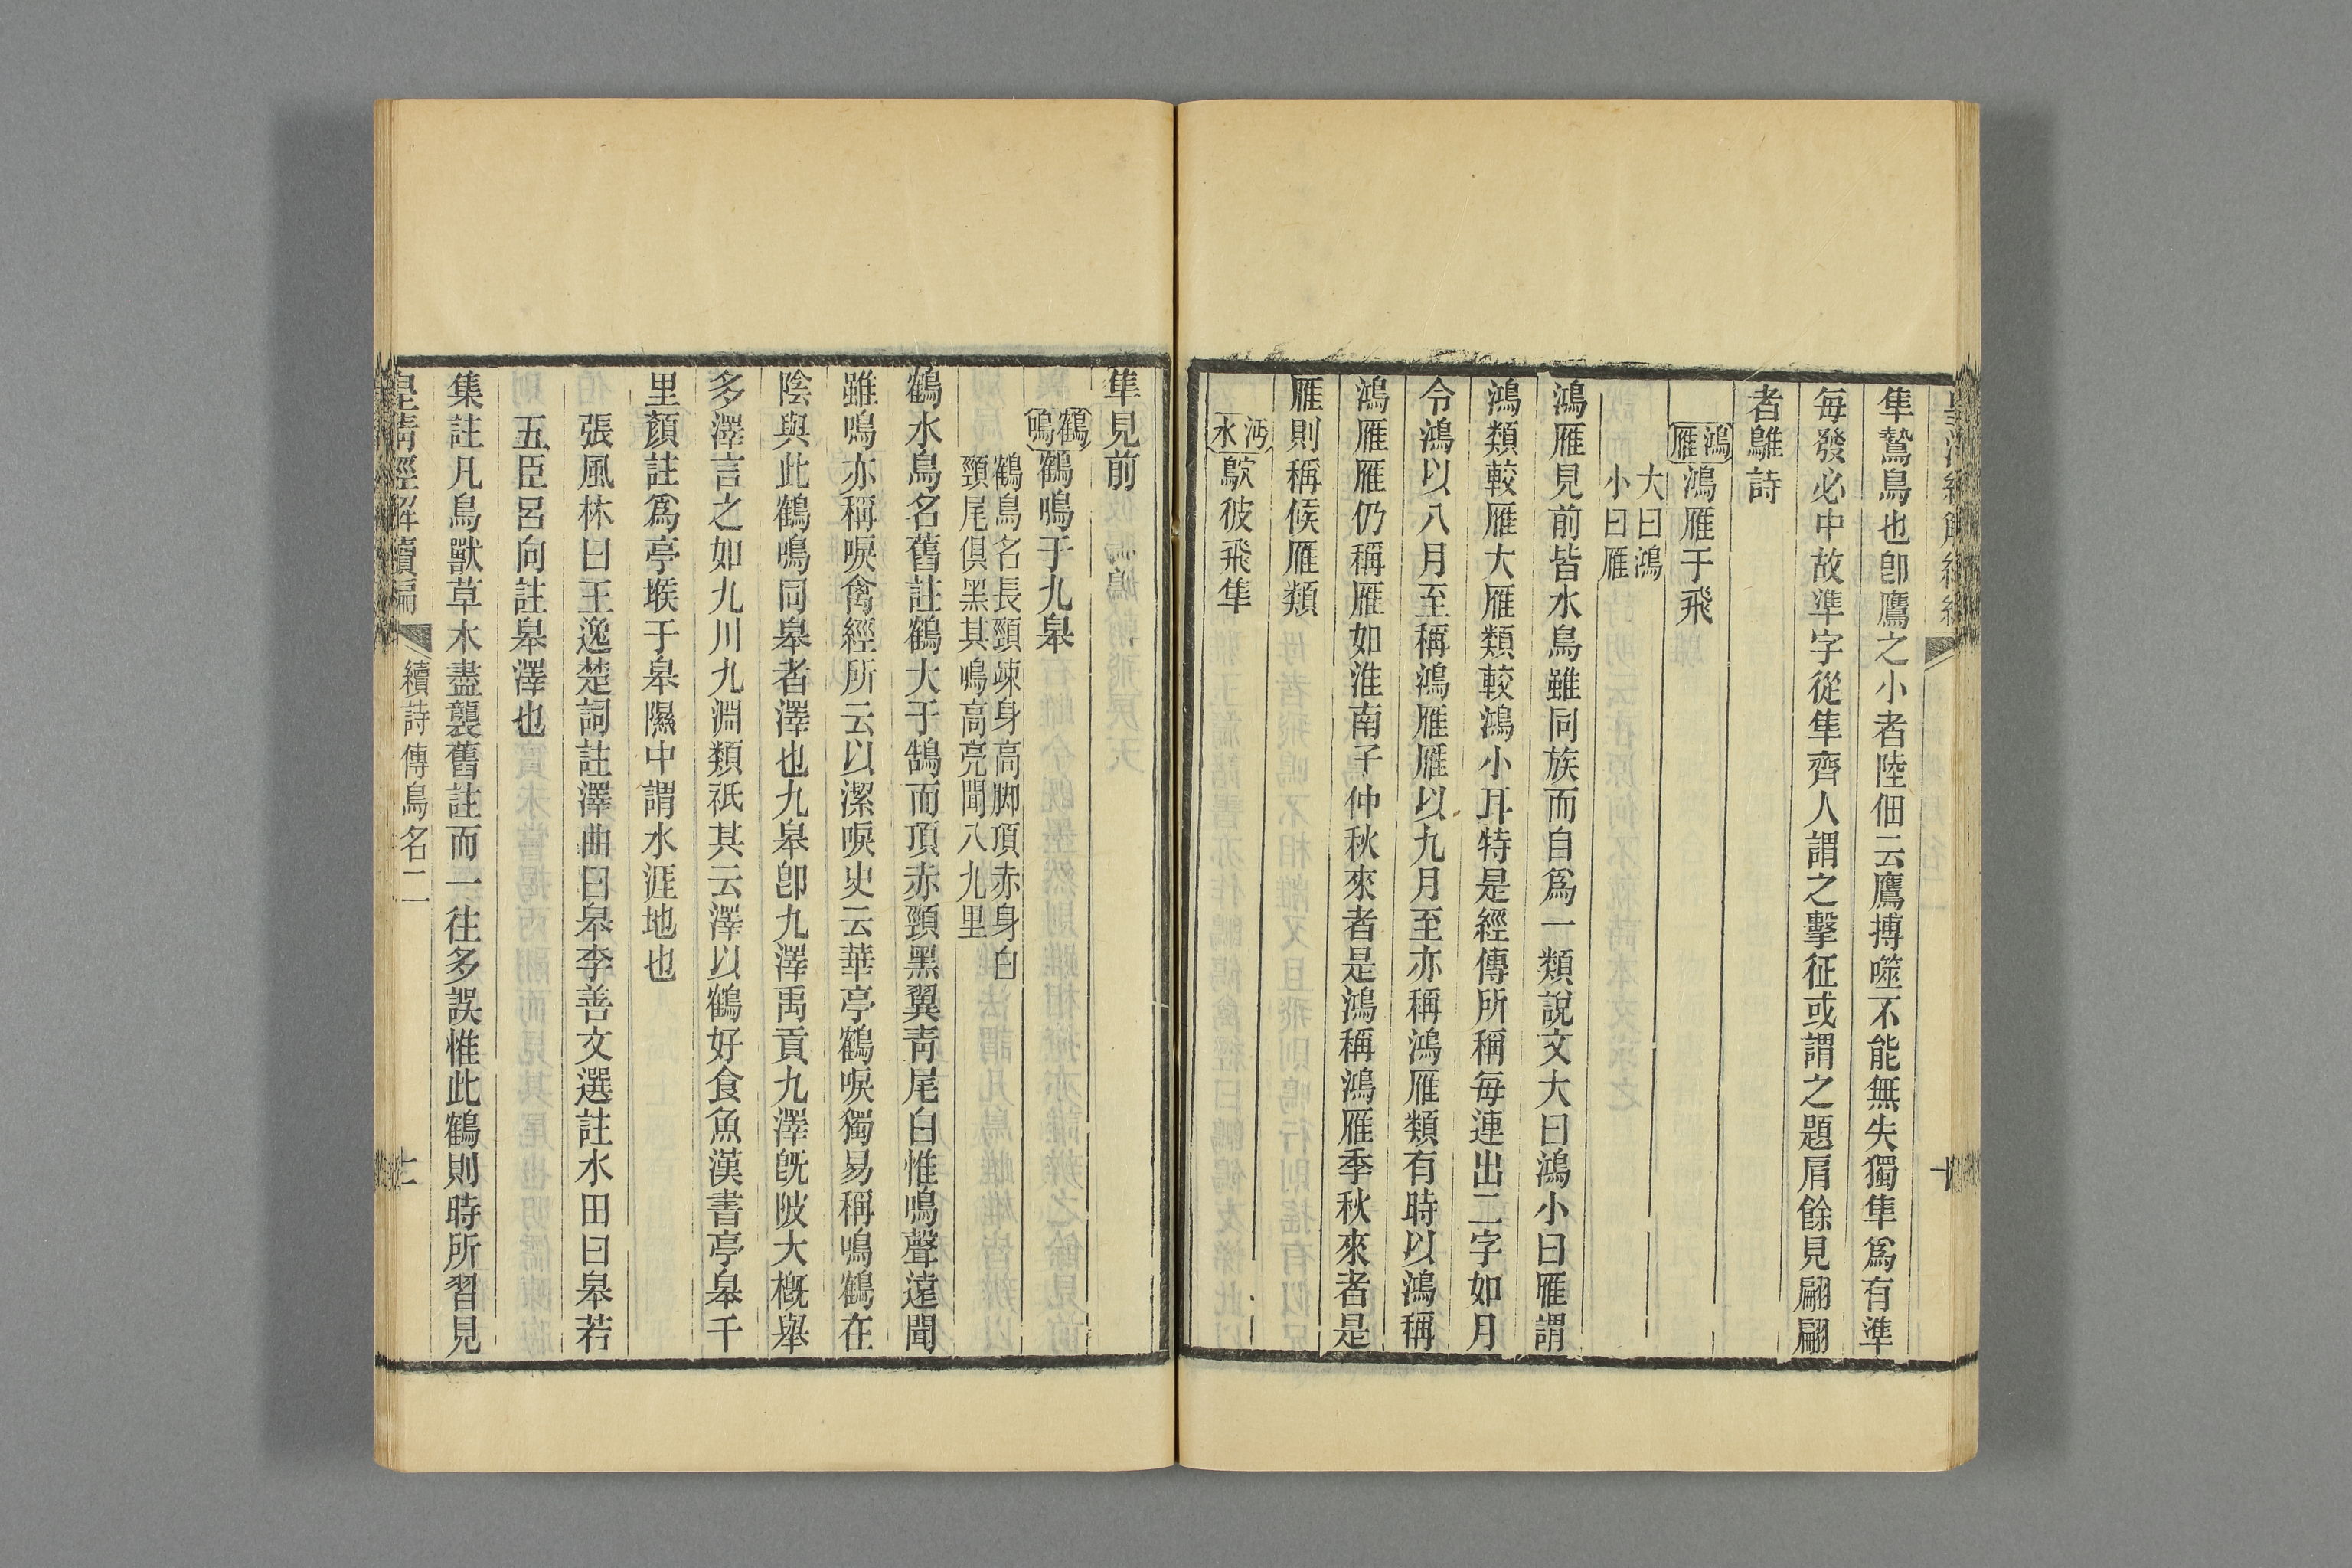 隼鷙鳥也卽鷹之小者陸佃云鷹搏噬不能無失獨隼爲有準
每發必中故準字從隼齊人謂之擊征或謂之題肩餘見翩翩
者鵻詩
鴻雁
鴻雁于飛
大曰鴻
小曰雁
鴻雁見前皆水鳥雖同族而自爲一類說文大曰鴻小曰雁謂
鴻類較雁大雁類較鴻小耳特是經傳所稱每連出二字如月
令鴻以八月至稱鴻雁雁以九月至亦稱鴻雁類有時以鴻稱
鴻雁雁仍稱雁如淮南子仲秋來者是鴻稱鴻雁季秋來者是
雁則稱候雁類
沔水
鴥彼飛隼
隼見前
鶴鳴
鶴鳴于九皋
鶴鳥名長頸竦身高脚頂赤身白
頸尾俱黑其鳴高亮聞八九里
鶴水鳥名舊註鶴大于鵠而頂赤頸黑翼靑尾白惟鳴聲遠聞
雖鳴亦稱唳禽經所云以潔唳史云華亭鶴唳獨易稱鳴鶴在
陰與此鶴鳴同皋者澤也九皋卽九澤禹貢九澤旣陂大槪舉
多澤言之如九川九淵類祇其云澤以鶴好食魚漢書亭皋千
里顏註爲亭堠于皋隰中謂水涯地也
張風林曰王逸楚詞註澤曲曰皋李善文選註水田曰皋若
五臣呂向註皋澤也
集註凡鳥獸草木盡襲舊註而一往多誤惟此鶴則時所習見
皇淸經解續編
續詩傳鳥名二